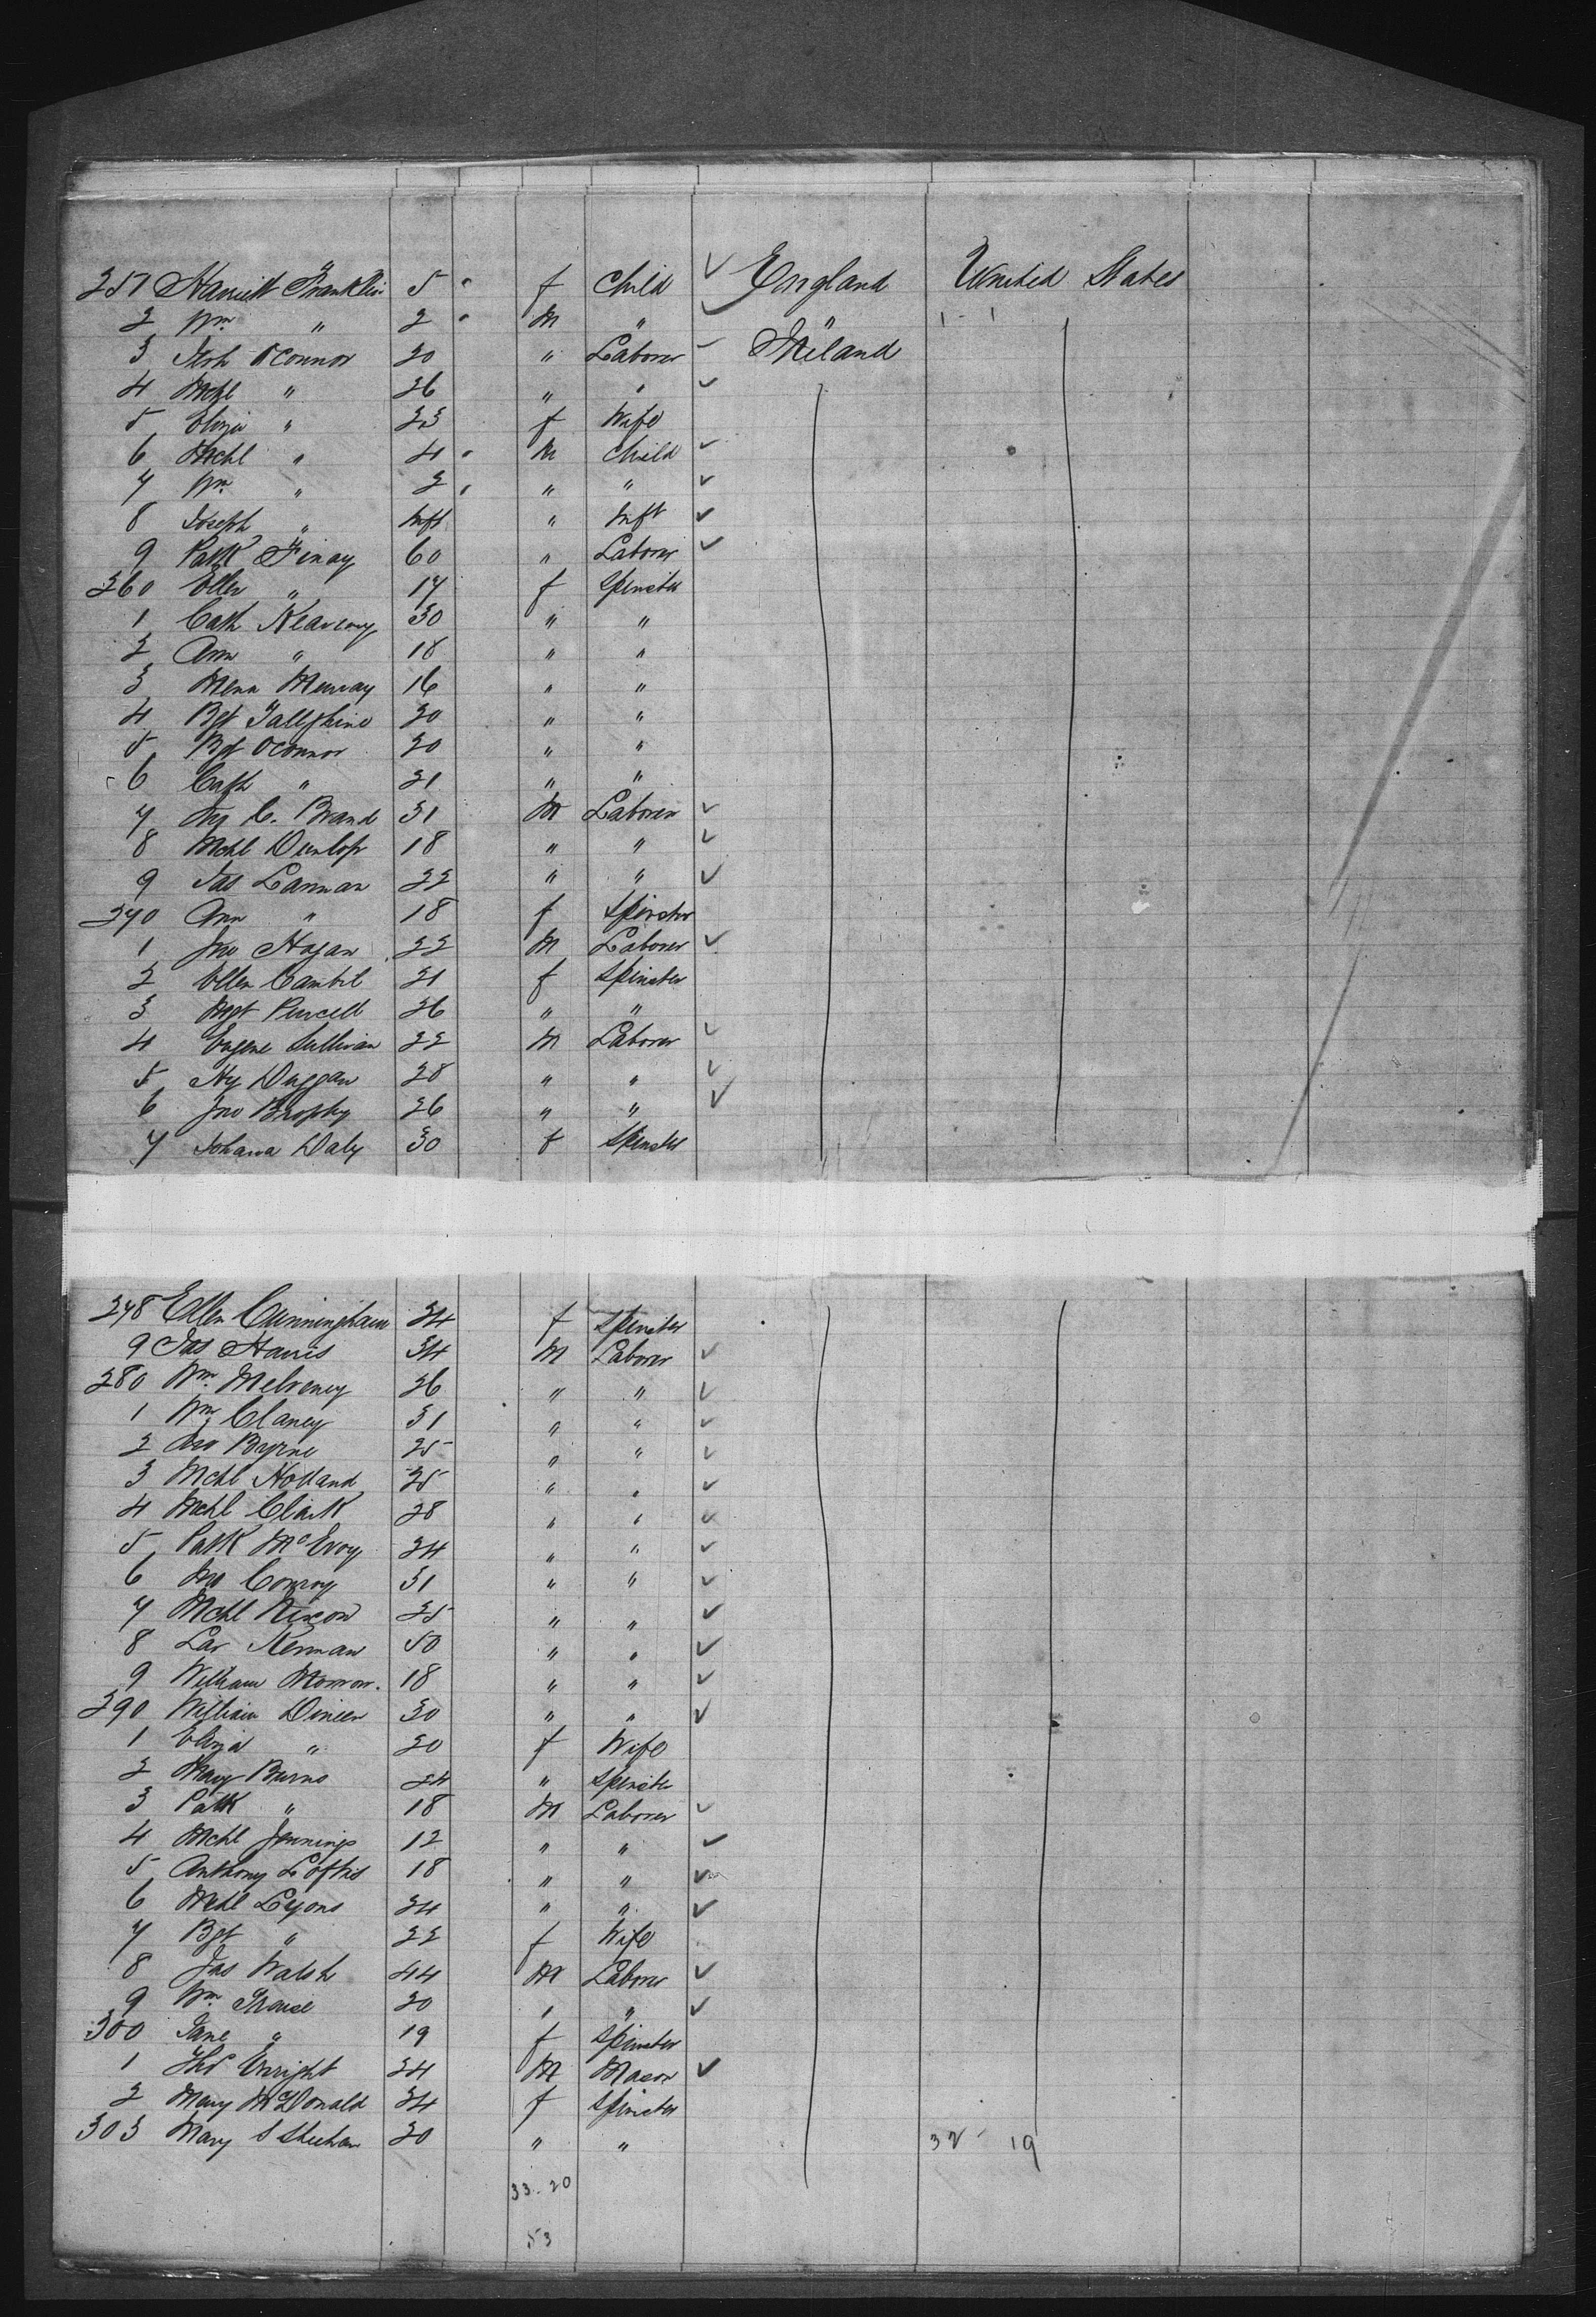 251 Harriett Franklin 5 " f Child ✓ England United States
2 Wm " 2 " M " ✓ " 1 - 1
3 Jerh OConnor 20 " Laborer – Ireland
4 Mchl " 26 " " ✓
5 Eliza " 23 f Wife
6 Mchl " 4 " M Child ✓
7 Wm " 2 " " " ✓
8 Joseph " Inft " Inft ✓
9 Patk Finay 60 " Laborer ✓
260 Ellen " 17 f Spinster
1 Cath Kearney 30 " "
2 Ann " 18 " "
3 Murray 16 " "
4 Bgt 20 " "
5 Bgt OConnor 20 " "
6 Cath " 21 " "
7 Hy C. Brand 31 M Laborer ✓
8 Mchl Dunlop 18 " " ✓
9 Jas Lannan 22 " " ✓
270 Ann " 18 f Spinster
1 Jno Hogan 22 M Laborer ✓
2 Ellen 21 f Spinster
3 Mgt Purcell 26 " "
4 Eugene Sullivan 22 M Laborer ✓
5 Hy Duggan 28 " " ✓
6 Jno Brophy 26 " " ✓
7 Johana Daly 30 f Spinster
278 Ellen Cunningham 24 f Spinster
9 Jas Harris 34 M Laborer ✓
280 Wm Melveney 26 " " ✓
1 Wm Clancy 31 " " ✓
2 Jno Byrne 25 " " ✓
3 Mchl Holland 25 " " ✓
4 Mchl Clark 28 " " ✓
5 Patk McEvoy 24 " " ✓
6 Jno Conroy 31 " " ✓
7 Mchl Nixon 25 " " ✓
8 Lar Kennan 50 " " ✓
9 William Morrow. 18 " " ✓
290 William Dineen 30 " " ✓
1 Eliza " 20 f Wife
2 Mary Burns 24 " Spinster
3 Patk " 18 M Laborer ✓
4 Mchl Jennings 12 " " ✓
5 Anthony Loftus 18 " " ✓
6 Mchl Lyons 24 " " ✓
7 Bgt " 22 f Wife
8 Jas Walsh 44 M Laborer ✓
9 Wm 20 " " ✓
300 Jane " 19 f Spinster
1 Thos Enright 24 M Mason ✓
2 Mary McDonald 24 f Spinster
303 Mary S Sheehan 20 " " 32 - 19
33 - 20
53